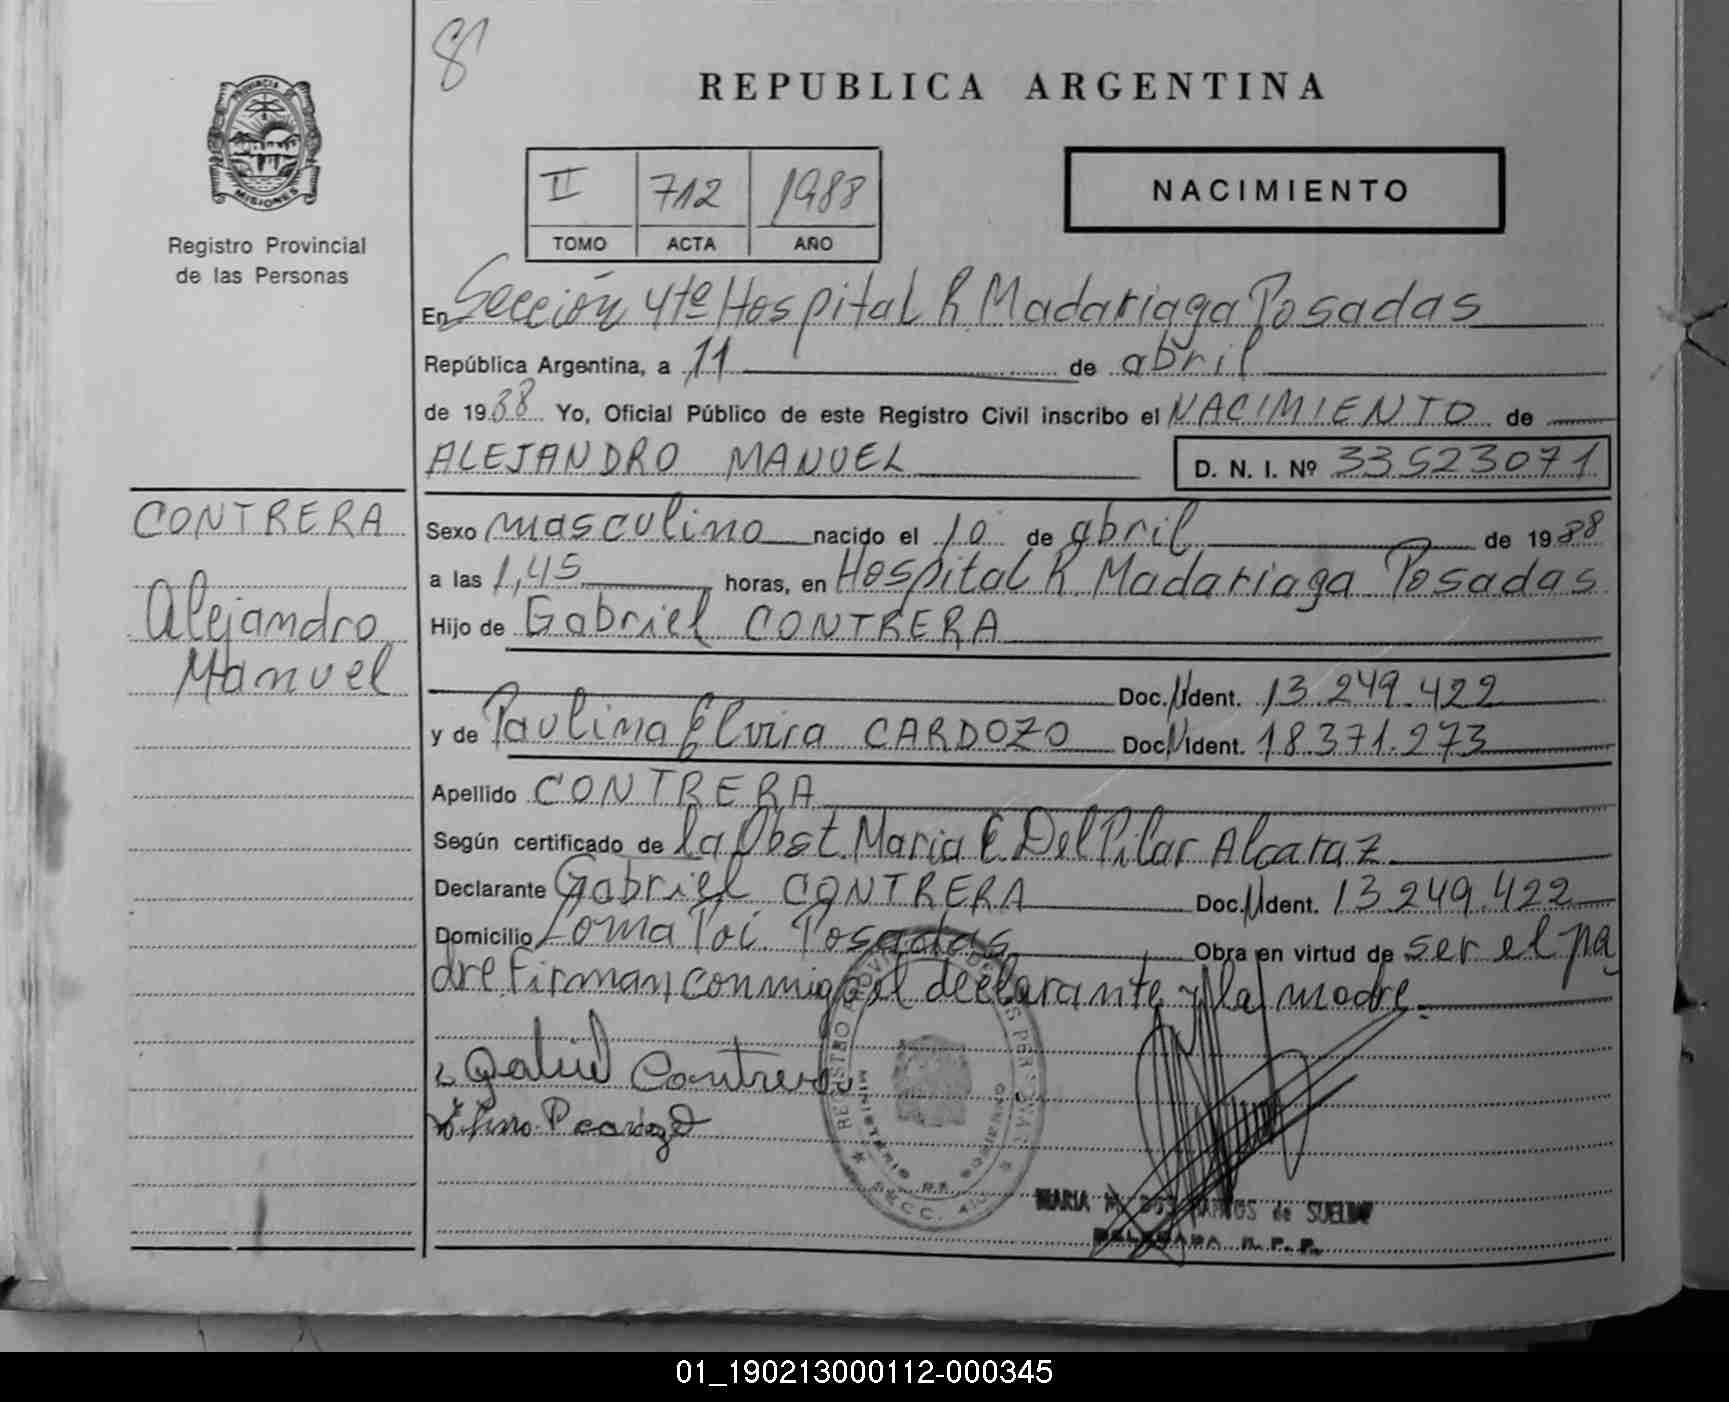 81
PROVINCIA DE
MISIONES
Registro Provincial
de las Personas
REPUBLICA ARGENTINA
II 712 1988
TOMO ACTA AÑO
NACIMIENTO
En Sección 4te Hospital R Madariaga Posadas
República Argentina, a 11 de abril
de 1988 Yo, Oficial Público de este Registro Civil inscribo el NACIMIENTO de
ALEJANDRO MANUEL D. N. I. Nº 33523071
CONTRERA
Alejandro
Manuel
Sexo masculino nacido el 10 de abril de 1988
a las 1,45 horas, en Hospital R. Madariaga Posadas
Hijo de Gabriel CONTRERA
Doc. N Ident. 13.249.422
y de Paulina Elvira CARDOZO Doc. N Ident. 18.371.273
Apellido CONTRERA
Según certificado de la Obst. Maria C. Del Pilar Alcaraz
Declarante Gabriel CONTRERA Doc. N Ident. 13.249.422
Domicilio Loma Poi Posadas Obra en virtud de ser el pa
dre. Firman conmigo el declarante y la madre.
Gabriel Contrera
REGISTRO PROVINCIAL DE LAS PERSONAS
MINISTERIO DE GOBIERNO
MARIA DOS SANTOS de
DELEGADA R. P. P.
01_190213000112-000345